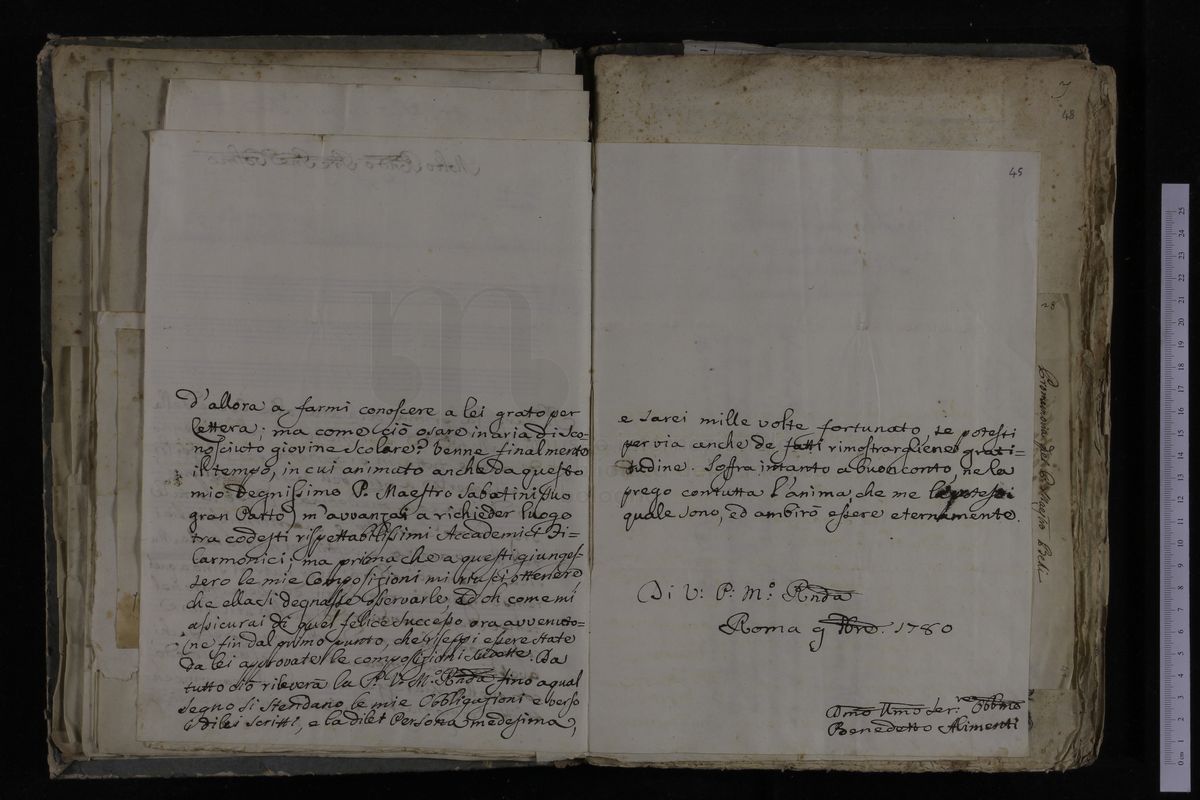 d'allora a farmi conoscere a lei grato per
lettera; ma come ciò osare in aria di sco-
nosciuto giovine scolare? Venne finalmente
il tempo, in cui animato anche da questo
mio degnissimo P. Maestro Sabatini (suo
gran Parto) m'avvanzai a richieder luogo
tra codesti rispettabilissimi Accademici Fi=
larmonici; ma prima che a questi giunges-
sero le mie Composizioni mi riuscì ottenere
che ella si degnasse osservarle, ed oh come mi
assicurai di quel felice successo ora avvenuto=
ne fin dal primo punto, che riseppi essere state
da lei approvate le composizioni sudotte. Da
tutto ciò rileverà la P. V. M.º Rnda fino a qual
segno si stendano le mie Obbligazioni e verso
i di lei scritti, e la di lei Persona medesima,
45
48
e sarei mille volte fortunato, se potessi
per via anche de fatti rimostrargliene grati-
tudine. Soffra intanto a buon conto, ne la
prego con tutta l'anima, che me le protesti
quale sono, ed ambirò essere eternamente.
Di V: P: M.º Rnda
Roma 9 Xbre. 1780
Dmo Umo Ser: re Obbmo
Benedetto Alimenti
28